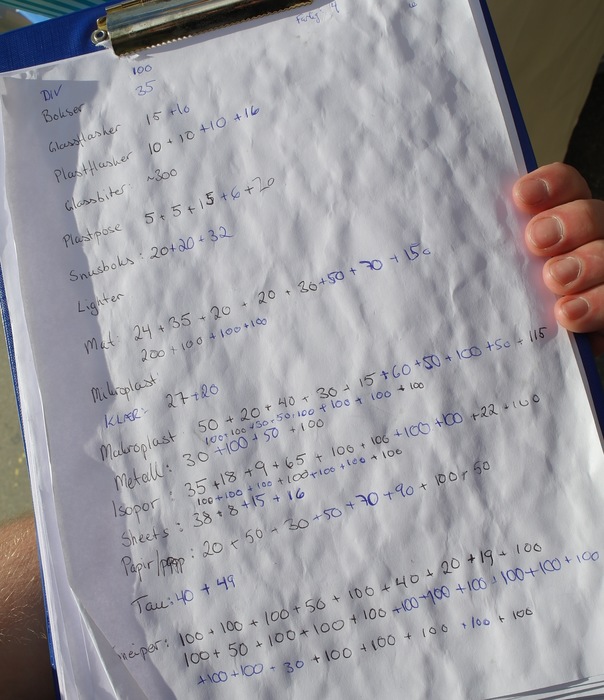 DIV 100
Bokser 35
Glassflasher 15 + 10
Plastflasher 10 + 10 + 10 + 16
Glassbiter: ~300
Plastpose 5 + 5 + 15 + 6 + 20
Snusboks: 20 + 20 + 32
Lighter
Mat: 24 + 35 + 20 + 20 + 30 + 50 + 70 + 150
200 + 100 + 100 + 100
Mikroplast
KLÆR: 27 + 20
Makroplast: 50 + 20 + 40 + 30 + 15 + 60 + 50 + 100 + 50 + 115
100 + 100 + 50 + 50 + 100 + 100 + 100 + 100
Metall: 30 + 100 + 50 + 100
Isopor: 35 + 18 + 9 + 65 + 100 + 100 + 100 + 100 + 22 + 100
100 + 100 + 100 + 100 + 100 + 100 + 100
Sheets: 38 + 8 + 15 + 16
Papir/papp: 20 + 50 + 30 + 50 + 70 + 90 + 100 + 50
Tau: 40 + 49
neiper: 100 + 100 + 100 + 50 + 100 + 40 + 20 + 19 + 100
100 + 50 + 100 + 100 + 100 + 100 + 100 + 100 + 100 + 100 + 100
+ 100 + 100 + 30 + 100 + 100 + 100 + 100 + 100